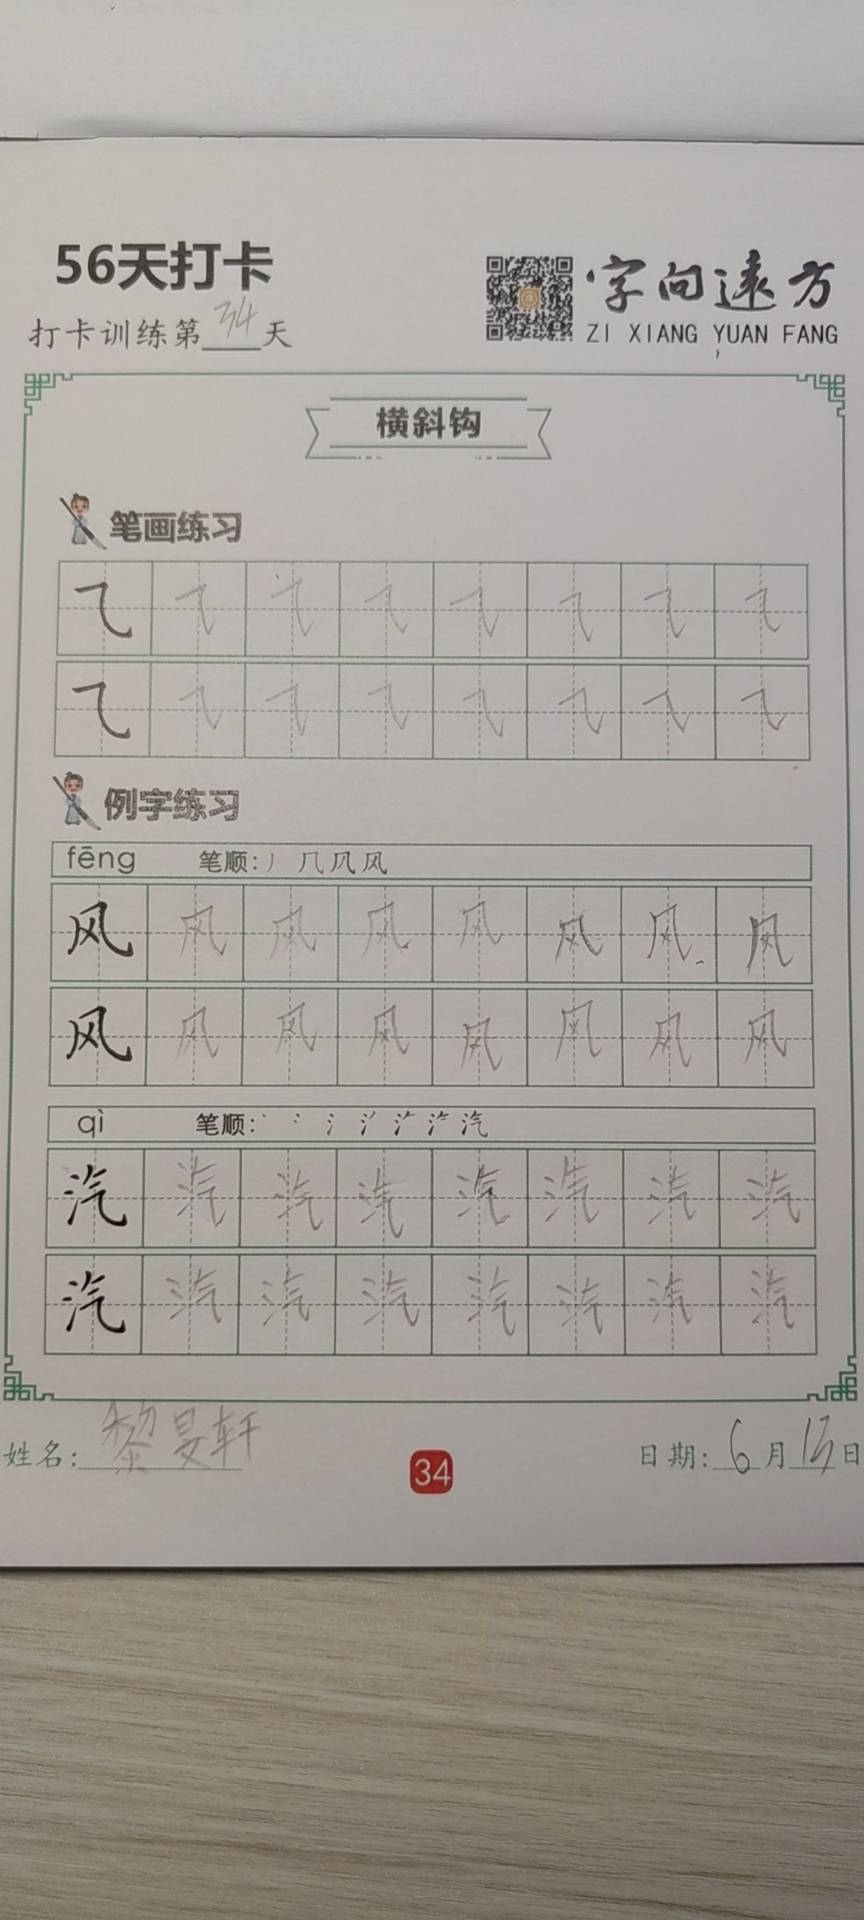 56天打卡
打卡训练第34天
字向远方
ZI XIANG YUAN FANG
横斜钩
笔画练习
⺄ ⺄ ⺄ ⺄ ⺄ ⺄ ⺄ ⺄
⺄ ⺄ ⺄ ⺄ ⺄ ⺄ ⺄ ⺄
例字练习
fēng 笔顺:丿 几 凤 风
风 风 风 风 风 风 风 风
风 风 风 风 风 风 风 风
qì 笔顺:丶 冫 氵 汽
汽 汽 汽 汽 汽 汽 汽 汽
汽 汽 汽 汽 汽 汽 汽 汽
姓名:黎旻轩
34
日期:6月13日